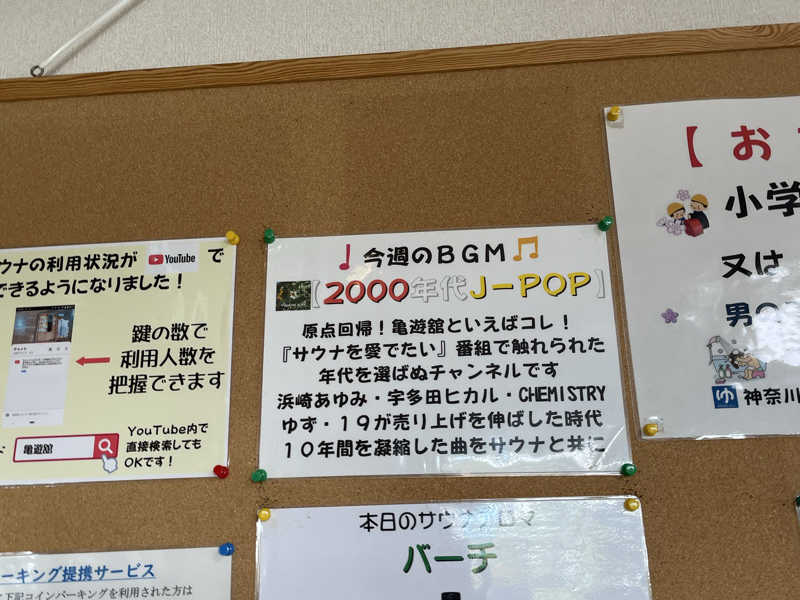 ウナの利用状況が YouTube で
できるようになりました!
鍵の数で
利用人数を
把握できます
亀遊舘
YouTube内で
直接検索しても
OKです!
今週のBGM
【2000年代J-POP】
原点回帰!亀遊舘といえばコレ!
『サウナを愛でたい』番組で触れられた
年代を選ばぬチャンネルです
浜崎あゆみ・宇多田ヒカル・CHEMISTRY
ゆず・19が売り上げを伸ばした時代
10年間を凝縮した曲をサウナと共に
【お
小学
又は
男の
ゆ 神奈川
本日のサウナアロマ
バーチ
ーキング提携サービス
下記コインパーキングを利用された方は